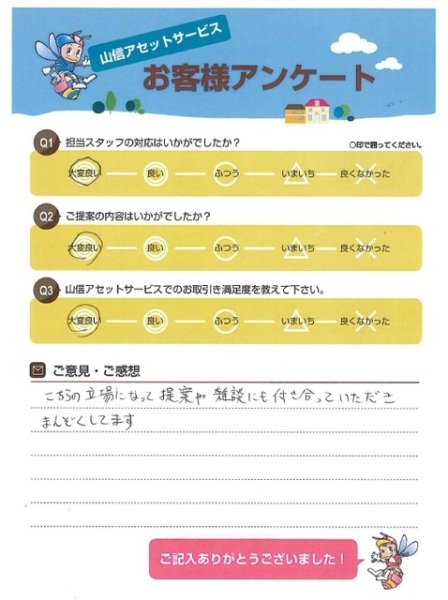 山信アセットサービス
お客様アンケート
Q1 担当スタッフの対応はいかがでしたか?
○印で囲ってください。
大変良い 良い ふつう いまいち 良くなかった
Q2 ご提案の内容はいかがでしたか?
大変良い 良い ふつう いまいち 良くなかった
Q3 山信アセットサービスでのお取引き満足度を教えて下さい。
大変良い 良い ふつう いまいち 良くなかった
ご意見・ご感想
こちらの立場になって提案や雑談にも付き合っていただき
まんどくしてます
ご記入ありがとうございました!